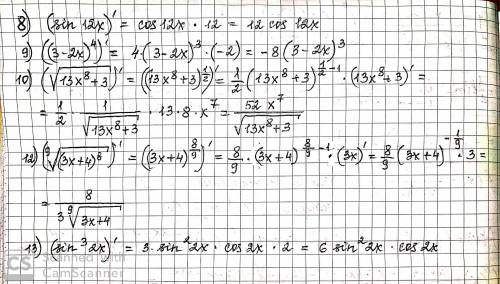 8) (sin 12x)' = cos 12x · 12 = 12 cos 12x
9) ((3-2x)⁴)' = 4·(3-2x)³·(-2) = -8(3-2x)³
10) (√(13x⁸+3))' = ((13x⁸+3)^(1/2))' = 1/2 (13x⁸+3)^(1/2 -1) · (13x⁸+3)' =
= 1/2 · 1/√(13x⁸+3) · 13·8·x⁷ = 52x⁷/√(13x⁸+3)
12) (⁹√((3x+4)⁸))' = ((3x+4)^(8/9))' = 8/9 · (3x+4)^(8/9 -1) · (3x)' = 8/9 (3x+4)^(-1/9) · 3 =
= 8/(3 ⁹√(3x+4))
13) (sin³2x)' = 3·sin²2x · cos2x · 2 = 6 sin²2x · cos2x
CS Scanned with
CamScanner